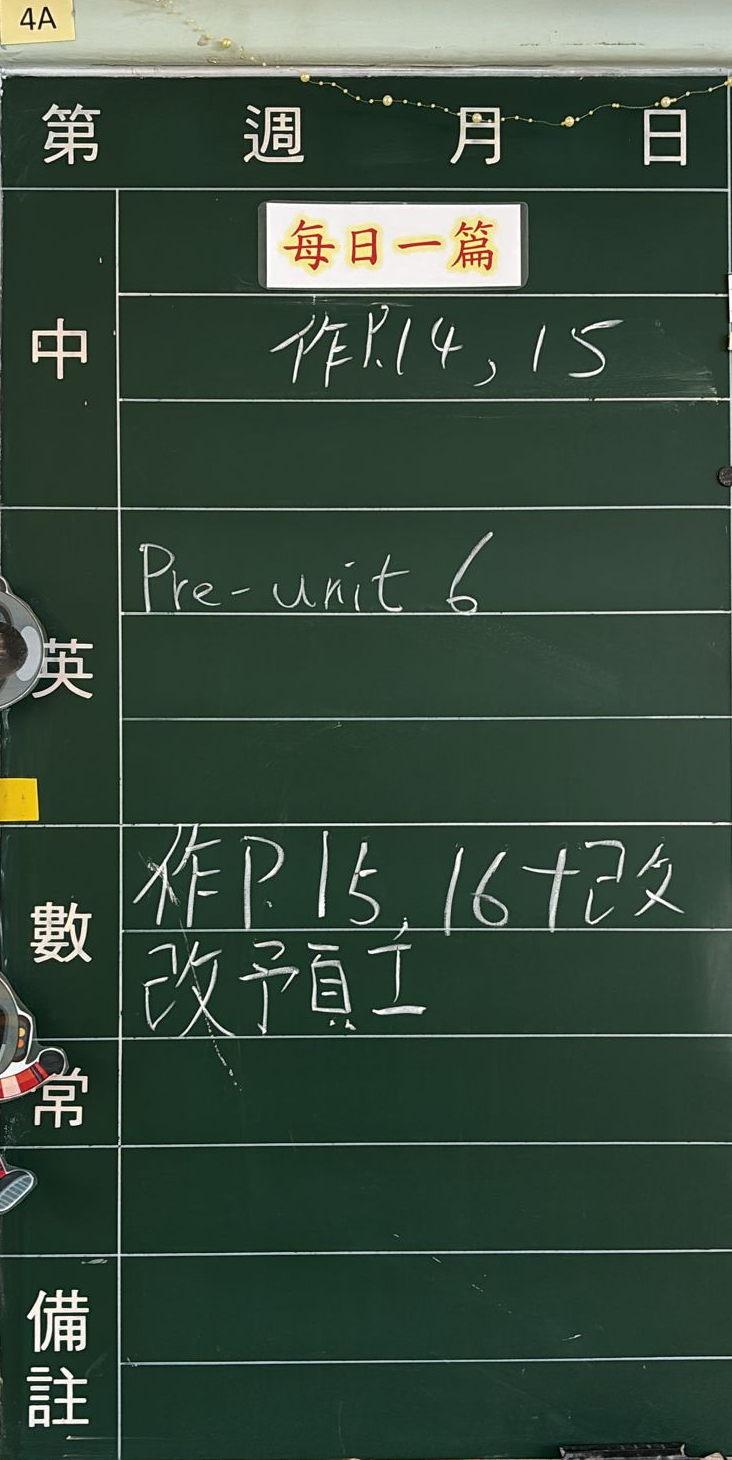 4A
第 週 月 日
每日一篇
中
作P.14, 15
Pre-unit 6
英
作P.15, 16+改
數
改預工
常
備
註